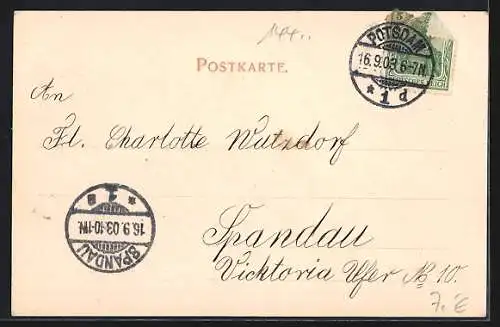 144..
5
POSTKARTE.
POTSDAM
16.9.03.6-7N.
* 1 d
An
Fl. Charlotte Wutzdorf
* 1 a
16.9.03.10-11N.
SPANDAU
Spandau
Vicktoria Ufer No 10.
7.E